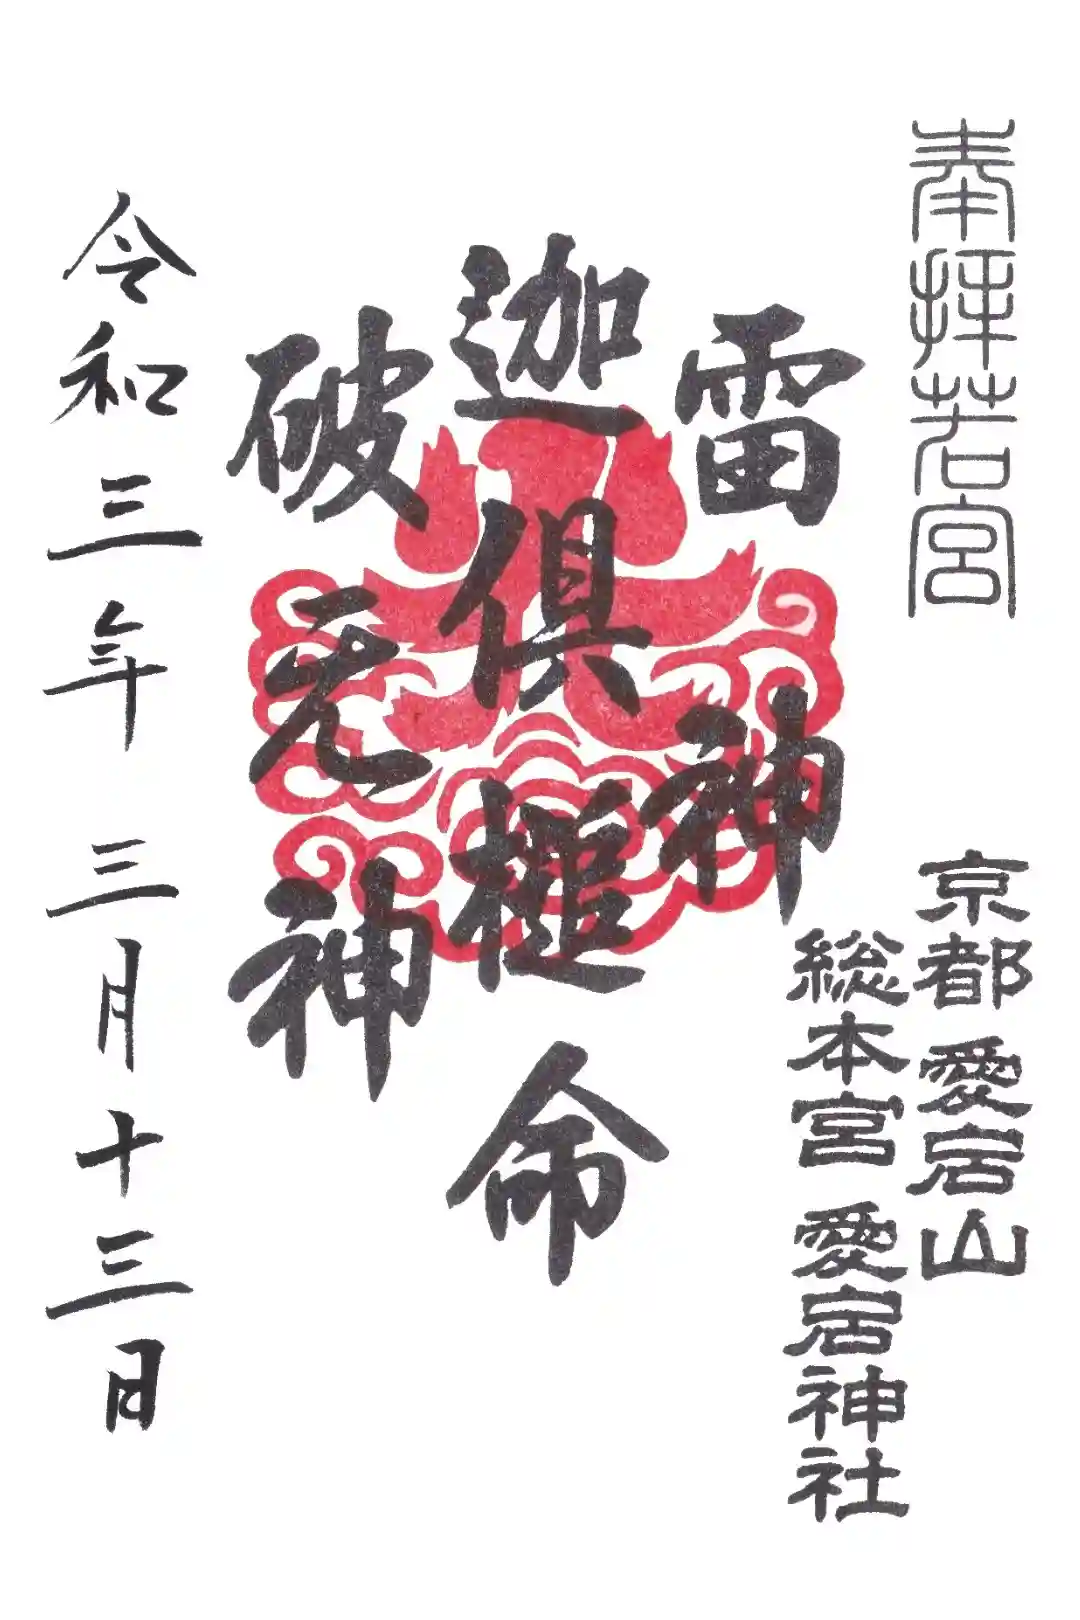 奉拝若宮
京都愛宕山
総本宮愛宕神社
雷神
迦倶槌命
破无神
令和三年三月十三日